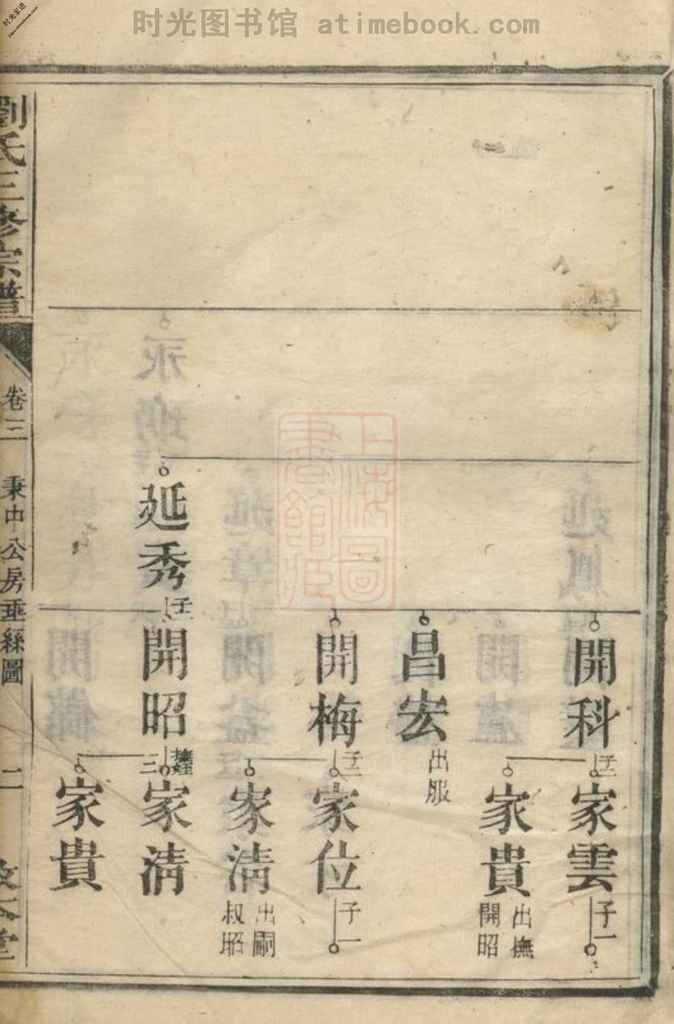 时光图书馆 atimebook.com
開科
子二
家雲
子一
家貴
出撫
開昭
昌宏
出服
開梅
子二
家位
子一
家清
出嗣
叔昭
延秀
子二
開昭
家清
家貴
劉氏三修宗譜
卷三
秉中公房垂絲圖
二
上海图
書館藏